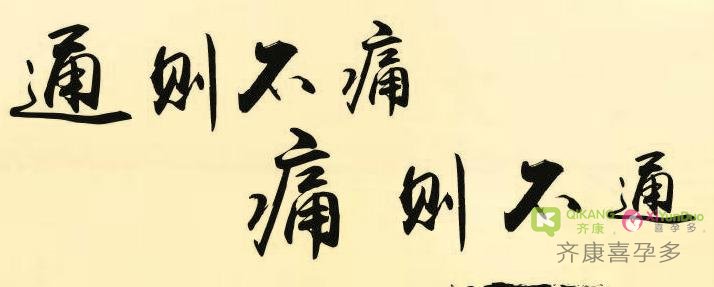 通则不痛
痛则不通
QIKANG
齐康
XiYunDuo
喜孕多
齐康喜孕多